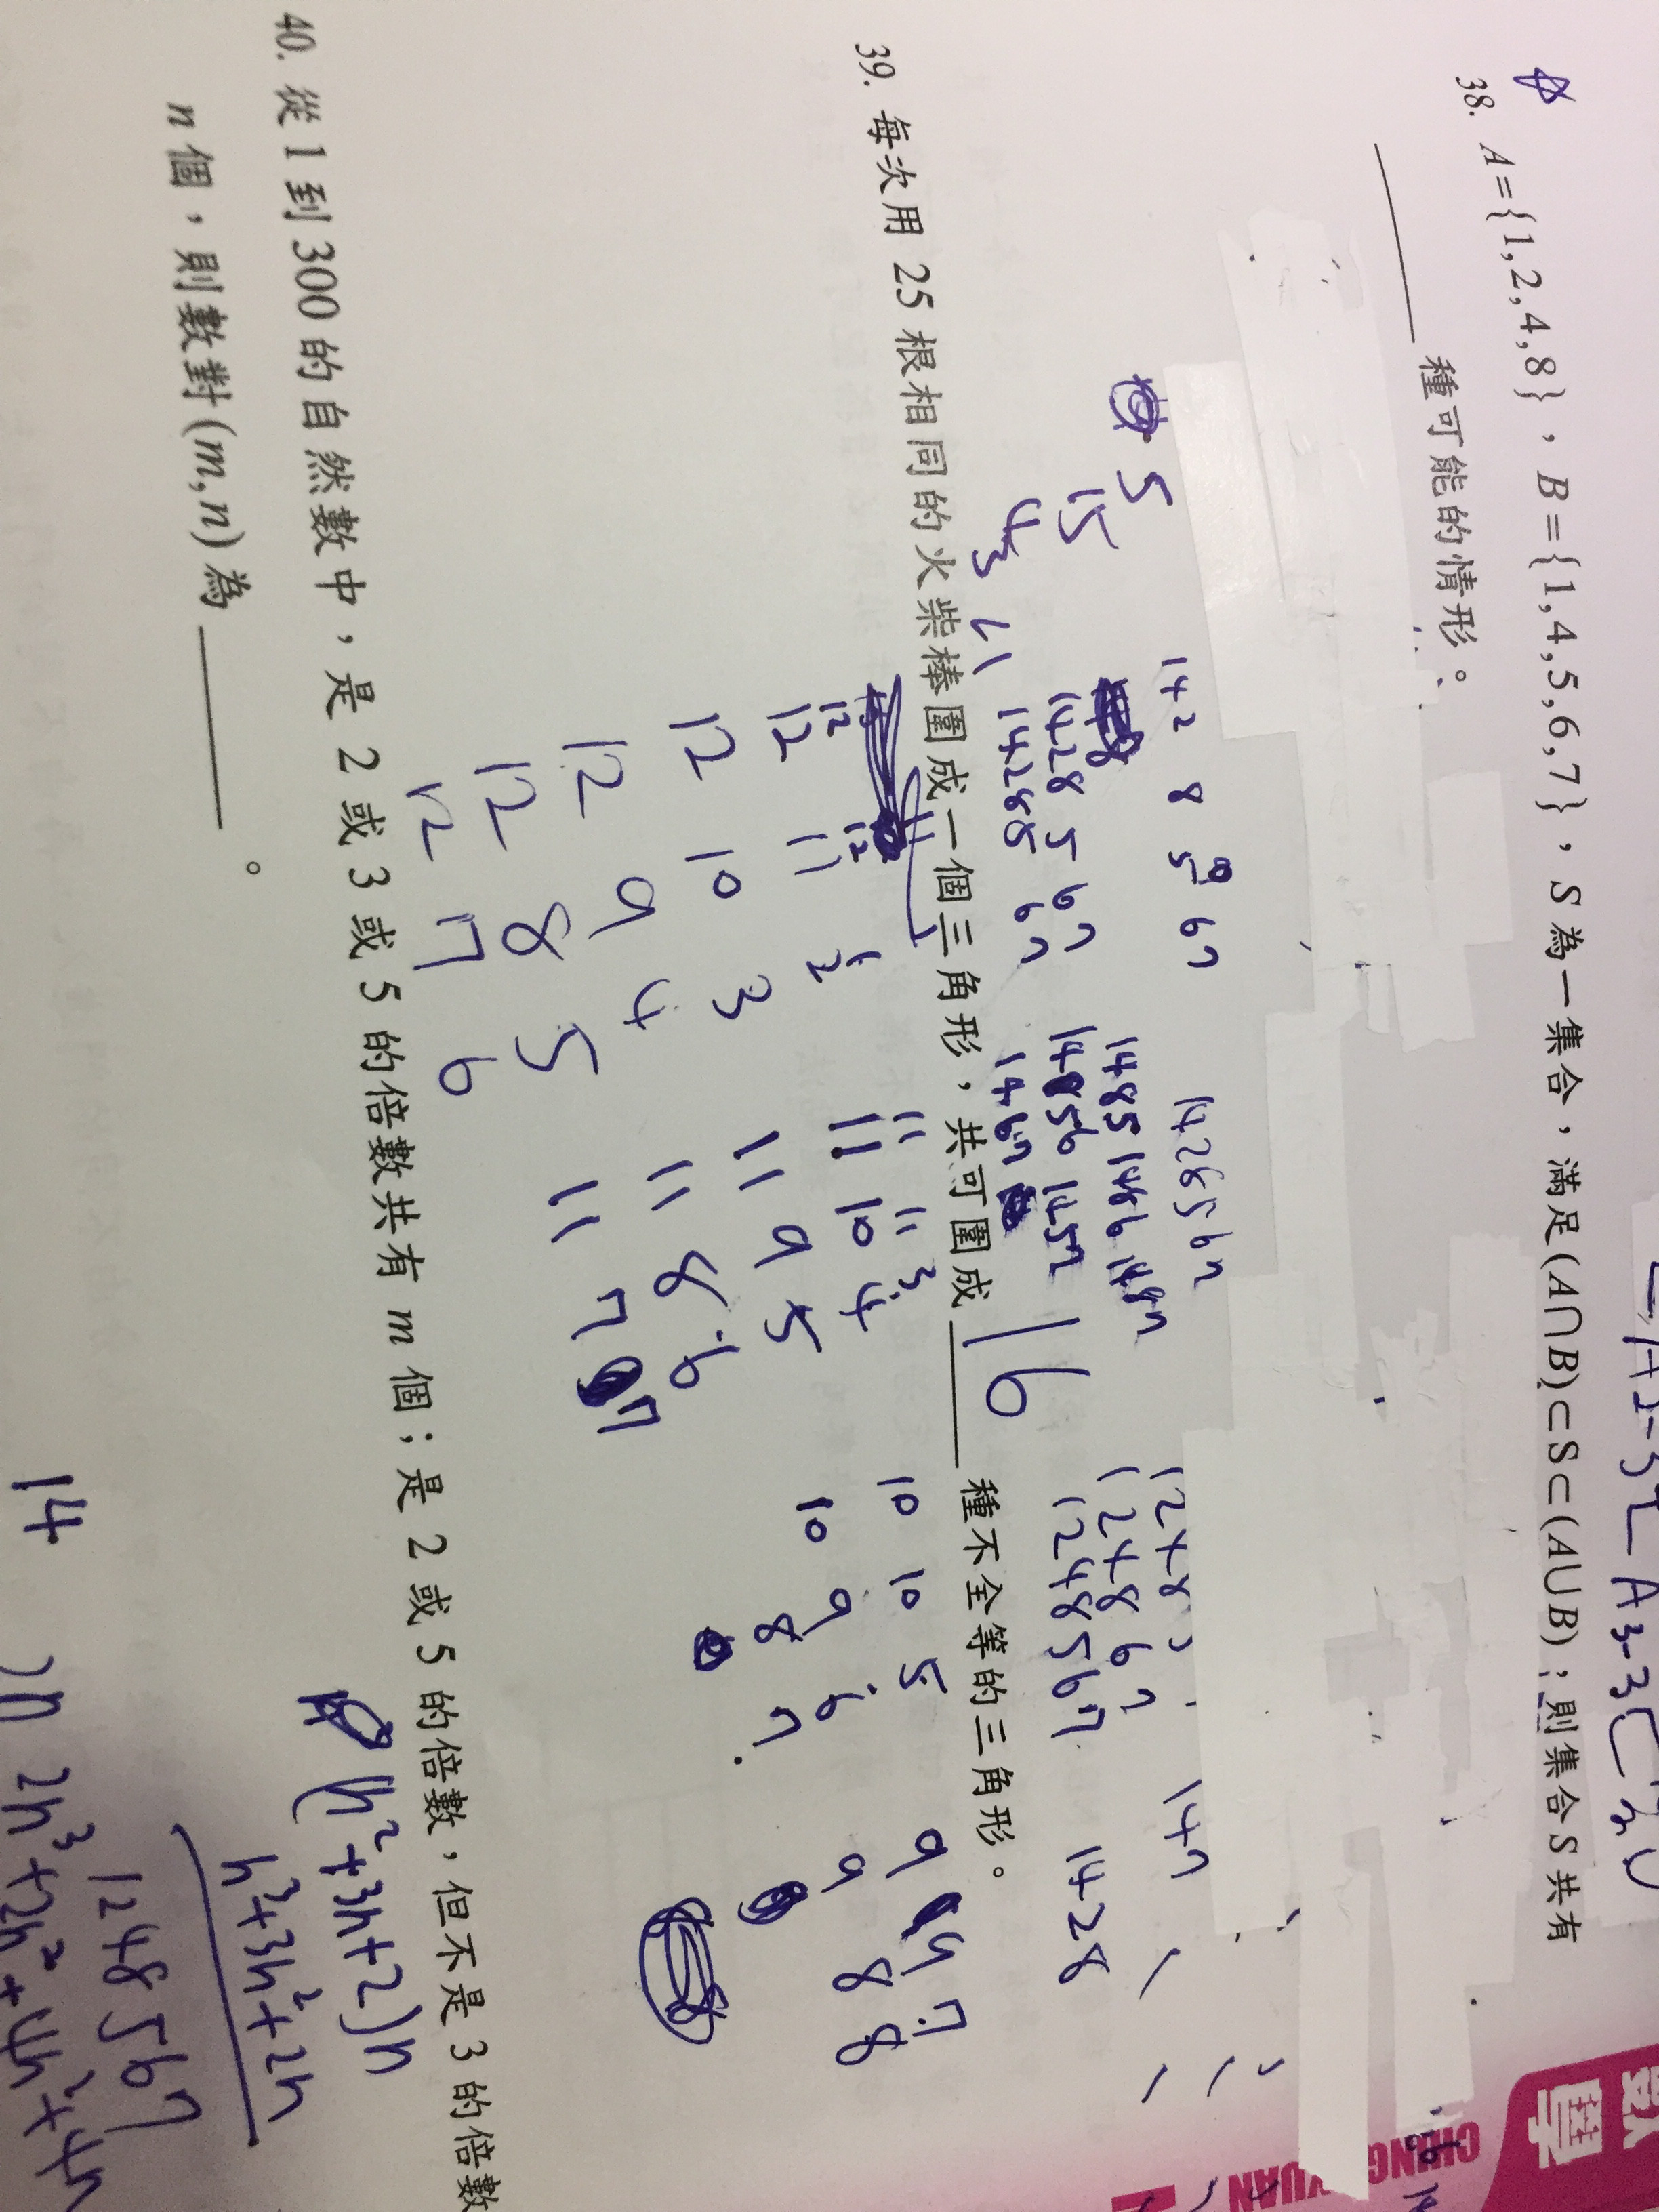 38. A={1,2,4,8}，B={1,4,5,6,7}，S為一集合，滿足(A∩B)⊂S⊂(A∪B)；則集合S共有
________種可能的情形。
5
15
43
142 8 5 67
1428 5 67
14285 67
1428567
1485 1486 1487
14856 1457
1467
1248 5
1248 67
1248567
147
1428
39. 每次用 25 根相同的火柴棒圍成一個三角形，共可圍成 16 種不全等的三角形。
12 12 1
12 11 2
12 10 3
12 9 4
12 8 5
12 7 6
11 11 3
11 10 4
11 9 5
11 8 6
11 7 7
10 10 5
10 9 6
10 8 7
9 9 7
9 8 8
40. 從1到300的自然數中，是 2 或 3 或 5 的倍數共有 m 個；是 2 或 5 的倍數，但不是 3 的倍數
n 個，則數對(m,n)為________。
(n²+3n+2)n
n³+3n²+2n
1248567
14
2n³+2n²+4n²+4n
數
學